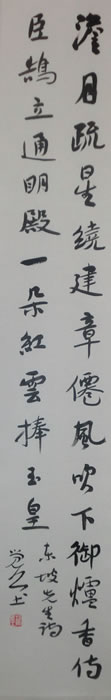 澹月疏星繞建章僊風吹下御爐香侍
臣鵠立通明殿一朵紅雲捧玉皇
东坡先生詩